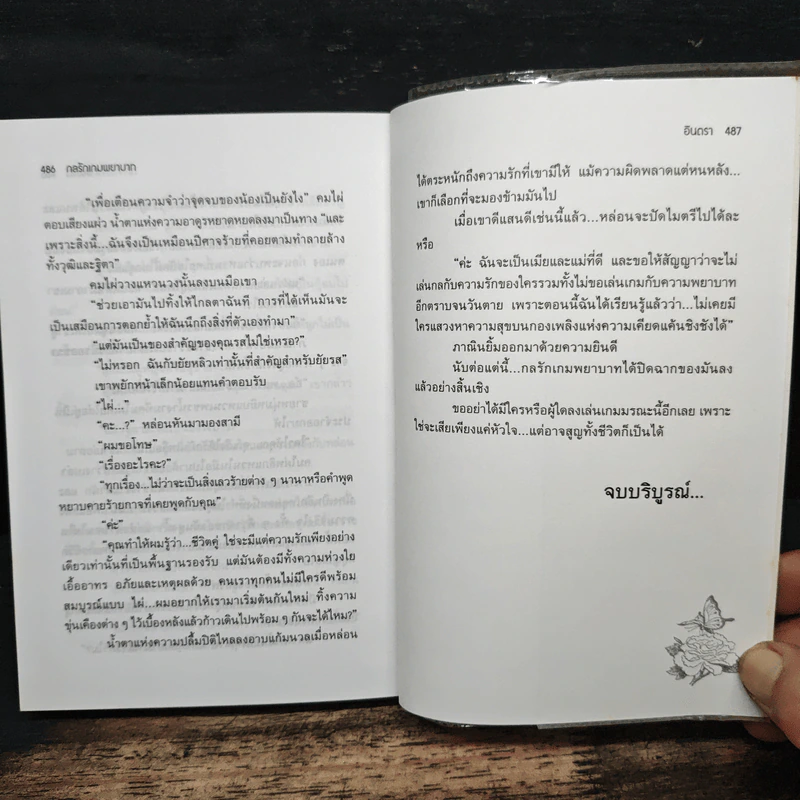 486 กลรักเกมพยาบาท
“เพื่อเตือนความจำว่าจุดจบของน้องเป็นยังไง” คมไผ่
ตอบเสียงแผ่ว น้ำตาแห่งความอาดูรหยาดหยดลงมาเป็นทาง “และ
เพราะสิ่งนี้...ฉันจึงเป็นเหมือนปีศาจร้ายที่คอยตามทำลายล้าง
ทั้งวุฒิและฐิตา”
คมไผ่วางแหวนวงนั้นลงบนมือเขา
“ช่วยเอามันไปทิ้งให้ไกลตาฉันที การที่ได้เห็นมันจะ
เป็นเสมือนการตอกย้ำให้ฉันนึกถึงสิ่งที่ตัวเองทำมา”
“แต่มันเป็นของสำคัญของคุณรสไม่ใช่เหรอ?”
“ไม่หรอก ฉันกับยัยหลิวเท่านั้นที่สำคัญสำหรับยัยรส”
เขาพยักหน้าเล็กน้อยแทนคำตอบรับ
“ไผ่...”
“คะ...?” หล่อนหันมามองสามี
“ผมขอโทษ”
“เรื่องอะไรคะ?”
“ทุกเรื่อง...ไม่ว่าจะเป็นสิ่งเลวร้ายต่าง ๆ นานาหรือคำพูด
หยาบคายร้ายกาจที่เคยพูดกับคุณ”
“ค่ะ”
“คุณทำให้ผมรู้ว่า...ชีวิตคู่ ใช่จะมีแต่ความรักเพียงอย่าง
เดียวเท่านั้นที่เป็นพื้นฐานรองรับ แต่มันต้องมีทั้งความห่วงใย
เอื้ออาทร อภัยและเหตุผลด้วย คนเราทุกคนไม่มีใครดีพร้อม
สมบูรณ์แบบ ไผ่...ผมอยากให้เรามาเริ่มต้นกันใหม่ ทิ้งความ
ขุ่นเคืองต่าง ๆ ไว้เบื้องหลังแล้วก้าวเดินไปพร้อม ๆ กันจะได้ไหม?”
น้ำตาแห่งความปลื้มปิติไหลลงอาบแก้มนวลเมื่อหล่อน
อินตรา 487
ได้ตระหนักถึงความรักที่เขามีให้ แม้ความผิดพลาดแต่หนหลัง...
เขาก็เลือกที่จะมองข้ามมันไป
เมื่อเขาดีแสนดีเช่นนี้แล้ว...หล่อนจะปัดไมตรีไปได้ละ
หรือ
“ค่ะ ฉันจะเป็นเมียและแม่ที่ดี และขอให้สัญญาว่าจะไม่
เล่นกลกับความรักของใครรวมทั้งไม่ขอเล่นเกมกับความพยาบาท
อีกตราบจนวันตาย เพราะตอนนี้ฉันได้เรียนรู้แล้วว่า...ไม่เคยมี
ใครแสวงหาความสุขบนกองเพลิงแห่งความเคียดแค้นชิงชังได้”
ภาณินยิ้มออกมาด้วยความยินดี
นับต่อแต่นี้...กลรักเกมพยาบาทได้ปิดฉากของมันลง
แล้วอย่างสิ้นเชิง
ขออย่าได้มีใครหรือผู้ใดลงเล่นเกมมรณะนี้อีกเลย เพราะ
ใช่จะเสียเพียงแค่หัวใจ...แต่อาจสูญทั้งชีวิตก็เป็นได้
จบบริบูรณ์...